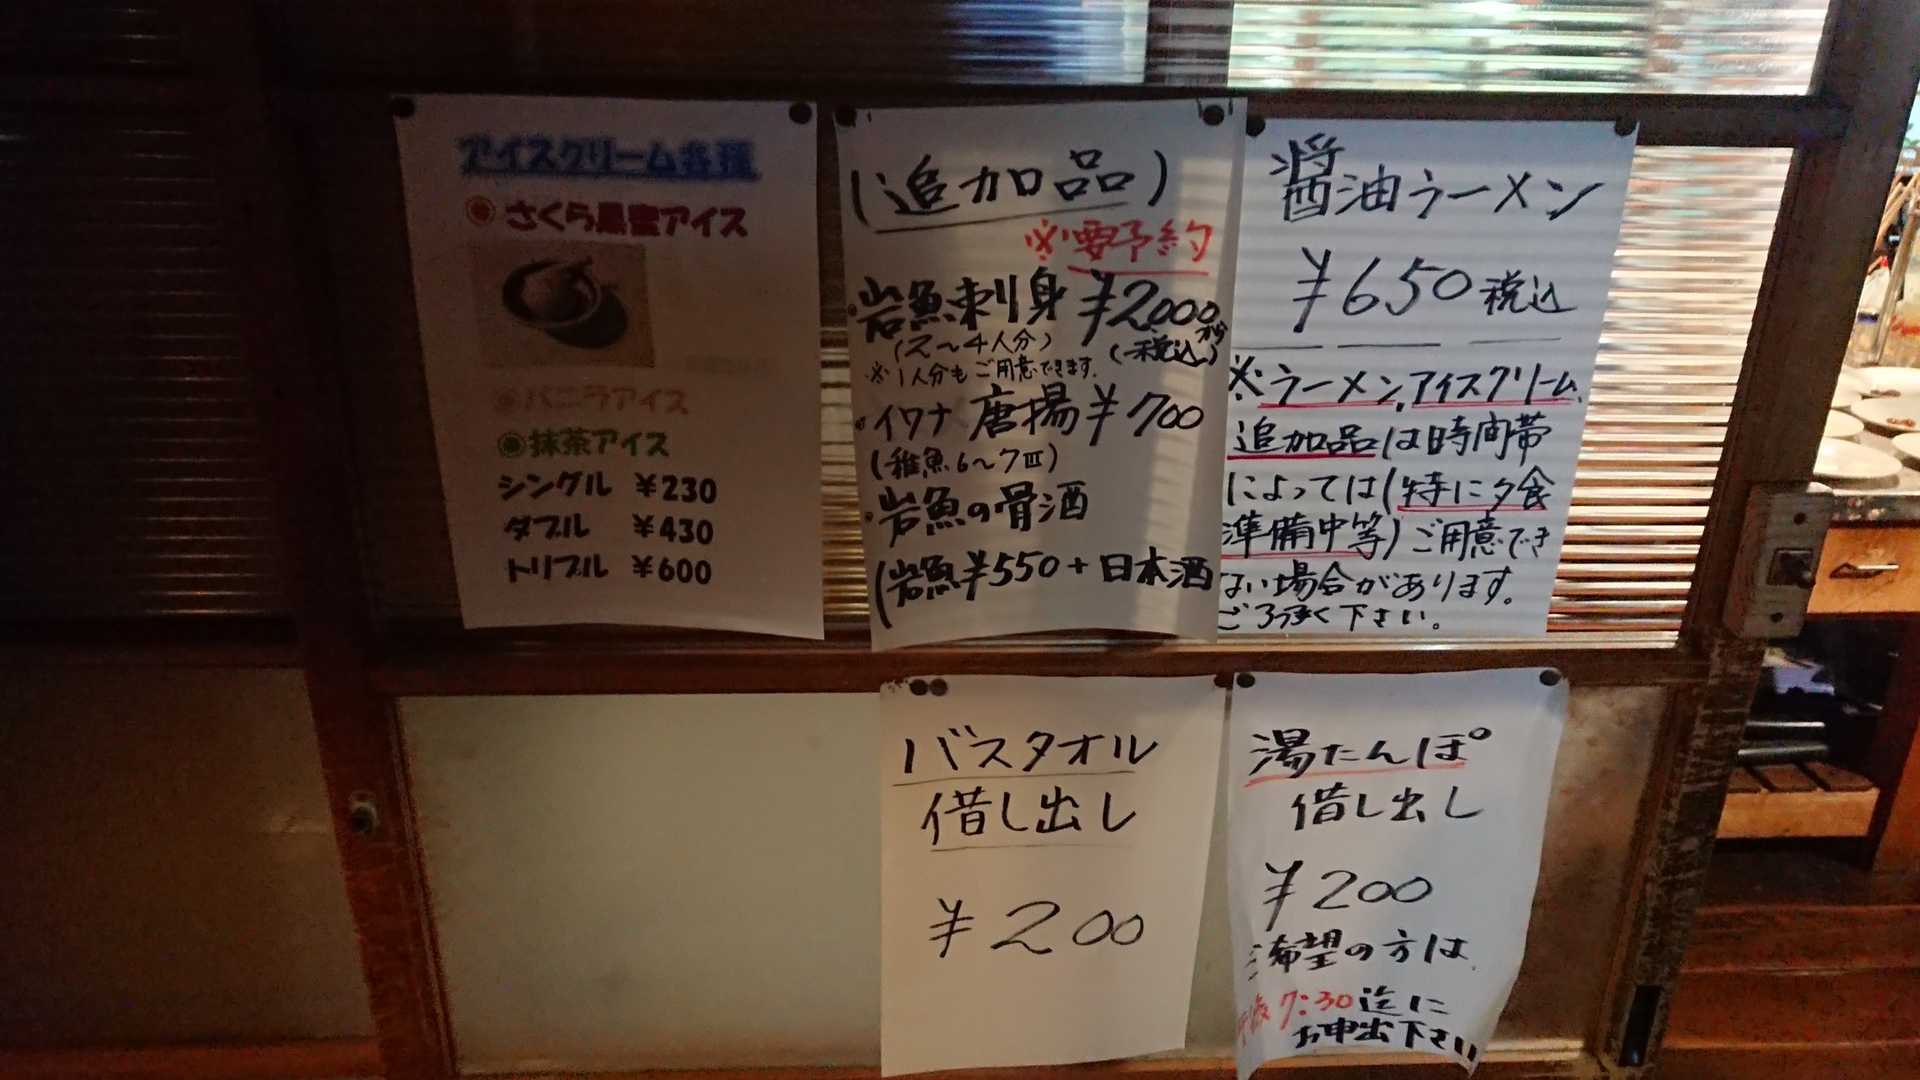 アイスクリーム各種
◉さくら黒蜜アイス
◉バニラアイス
◉抹茶アイス
シングル ¥230
ダブル ¥430
トリプル ¥600
(追加品)
※要予約
・岩魚刺身 ¥2,000から
(2〜4人分) (税込)
※1人分もご用意できます。
・イワナ 唐揚 ¥700
(稚魚6〜7匹)
・岩魚の骨酒
(岩魚¥550+日本酒
醤油ラーメン
¥650税込
※ラーメン、アイスクリーム、
追加品は時間帯
によっては(特に夕食
準備中等)ご用意でき
ない場合があります。
ご了承く下さい。
バスタオル
借し出し
¥200
湯たんぽ
借し出し
¥200
ご希望の方は
7:30迄に
お申出下さい